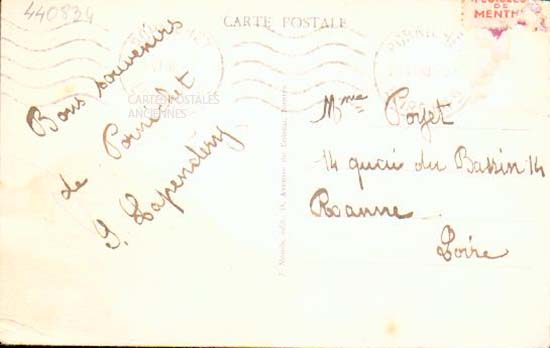 440834
CARTE POSTALE
DE
MENTH
CARTES POSTALES
ANCIENNES
Bons souvenirs
de Pornichet
Mme Porjet
14 quai du Bassin 14
Roanne
Loire